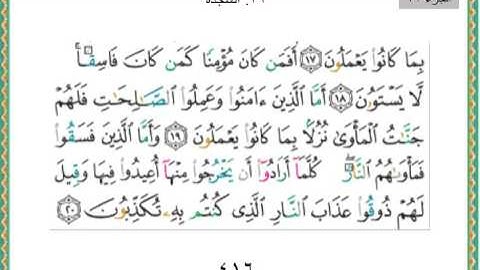 ٣٢. السجدة
الجزء ٢١
بِمَا كَانُوا۟ يَعْمَلُونَ ﴿١٧﴾ أَفَمَن كَانَ مُؤْمِنًا كَمَن كَانَ فَاسِقًا ۚ
لَّا يَسْتَوُۥنَ ﴿١٨﴾ أَمَّا الَّذِينَ ءَامَنُوا۟ وَعَمِلُوا۟ الصَّـٰلِحَـٰتِ فَلَهُمْ
جَنَّـٰتُ الْمَأْوَىٰ نُزُلًۢا بِمَا كَانُوا۟ يَعْمَلُونَ ﴿١٩﴾ وَأَمَّا الَّذِينَ فَسَقُوا۟
فَمَأْوَىٰهُمُ النَّارُ ۖ كُلَّمَآ أَرَادُوٓا۟ أَن يَخْرُجُوا۟ مِنْهَآ أُعِيدُوا۟ فِيهَا وَقِيلَ
لَهُمْ ذُوقُوا۟ عَذَابَ النَّارِ الَّذِى كُنتُم بِهِۦ تُكَذِّبُونَ ﴿٢٠﴾
٤١٦